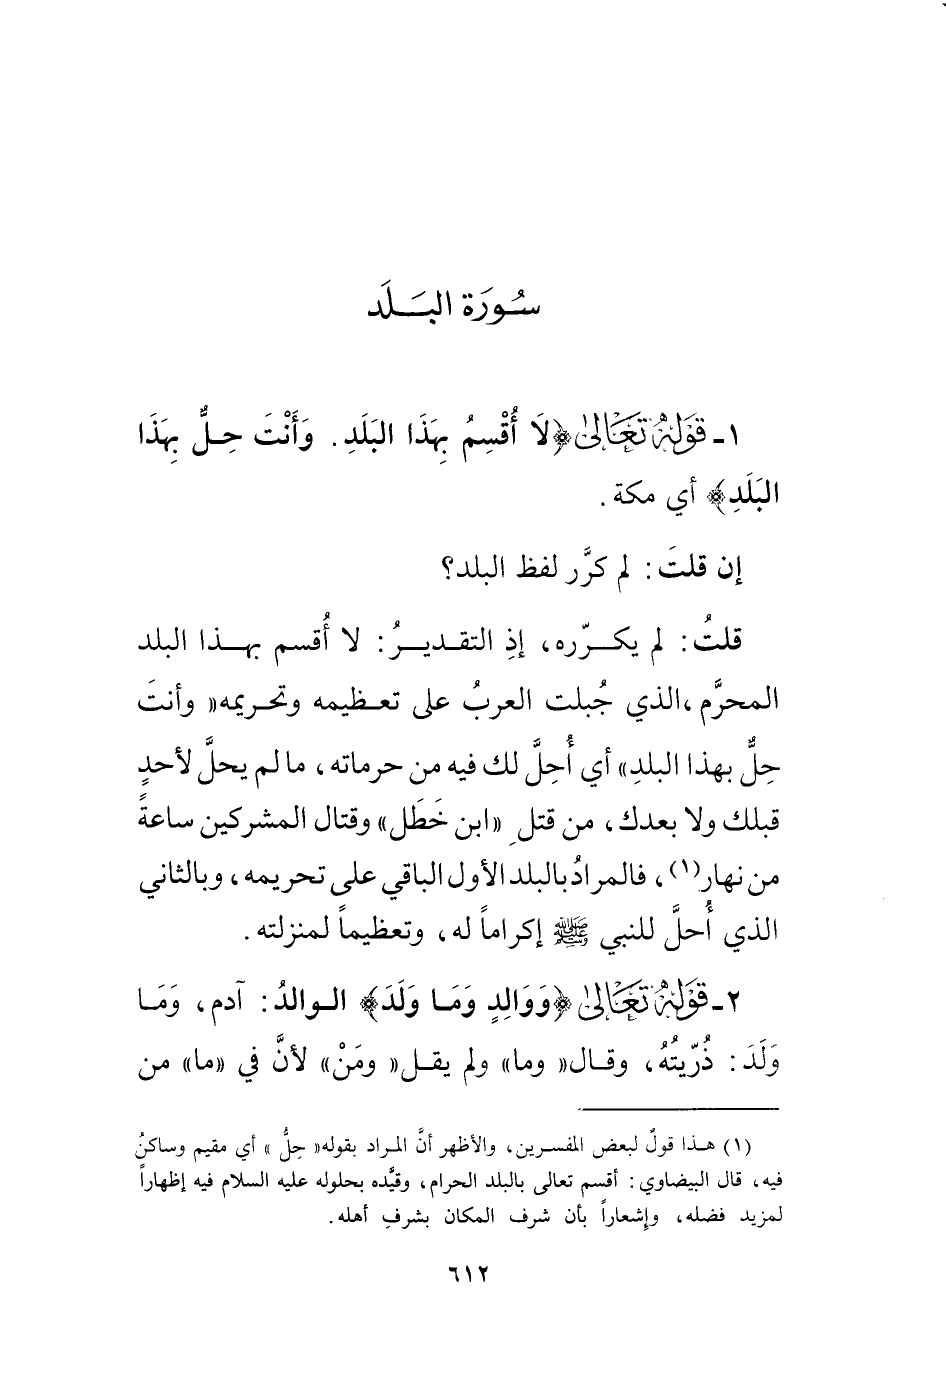 سُورَة البَلَد
١- قَوْلُهُ تَعَالىٰ ﴿لَا أُقْسِمُ بِهَذَا البَلَدِ. وَأَنْتَ حِلٌّ بِهَذَا
البَلَدِ﴾ أي مكة.
إن قلتَ: لم كرَّر لفظ البلد؟
قلتُ: لم يكرّره، إذِ التقديرُ: لا أُقسم بهذا البلد
المحرَّم ،الذي جُبلت العربُ على تعظيمه وتحريمه« وأنتَ
حِلٌّ بهذا البلدِ» أي أُحِلَّ لك فيه من حرماته، ما لم يحلَّ لأحدٍ
قبلك ولا بعدك، من قتلِ «ابن خَطَل» وقتال المشركين ساعةً
من نهار(١)، فالمرادُ بالبلد الأول الباقي على تحريمه، وبالثاني
الذي أُحلَّ للنبي ﷺ إكراماً له، وتعظيماً لمنزلته.
٢- قَوْلُهُ تَعَالىٰ ﴿وَوَالِدٍ وَمَا وَلَدَ﴾ الوالدُ: آدم، وَمَا
وَلَدَ: ذُرّيتُهُ، وقال« وما» ولم يقل« ومَنْ» لأنَّ في «ما» من
(١) هذا قولٌ لبعض المفسرين، والأظهر أنَّ المراد بقوله« حِلٌّ » أي مقيم وساكنُ
فيه، قال البيضاوي: أقسم تعالى بالبلد الحرام، وقيَّده بحلوله عليه السلام فيه إظهاراً
لمزيد فضله، وإشعاراً بأن شرف المكان بشرفِ أهله.
٦١٢